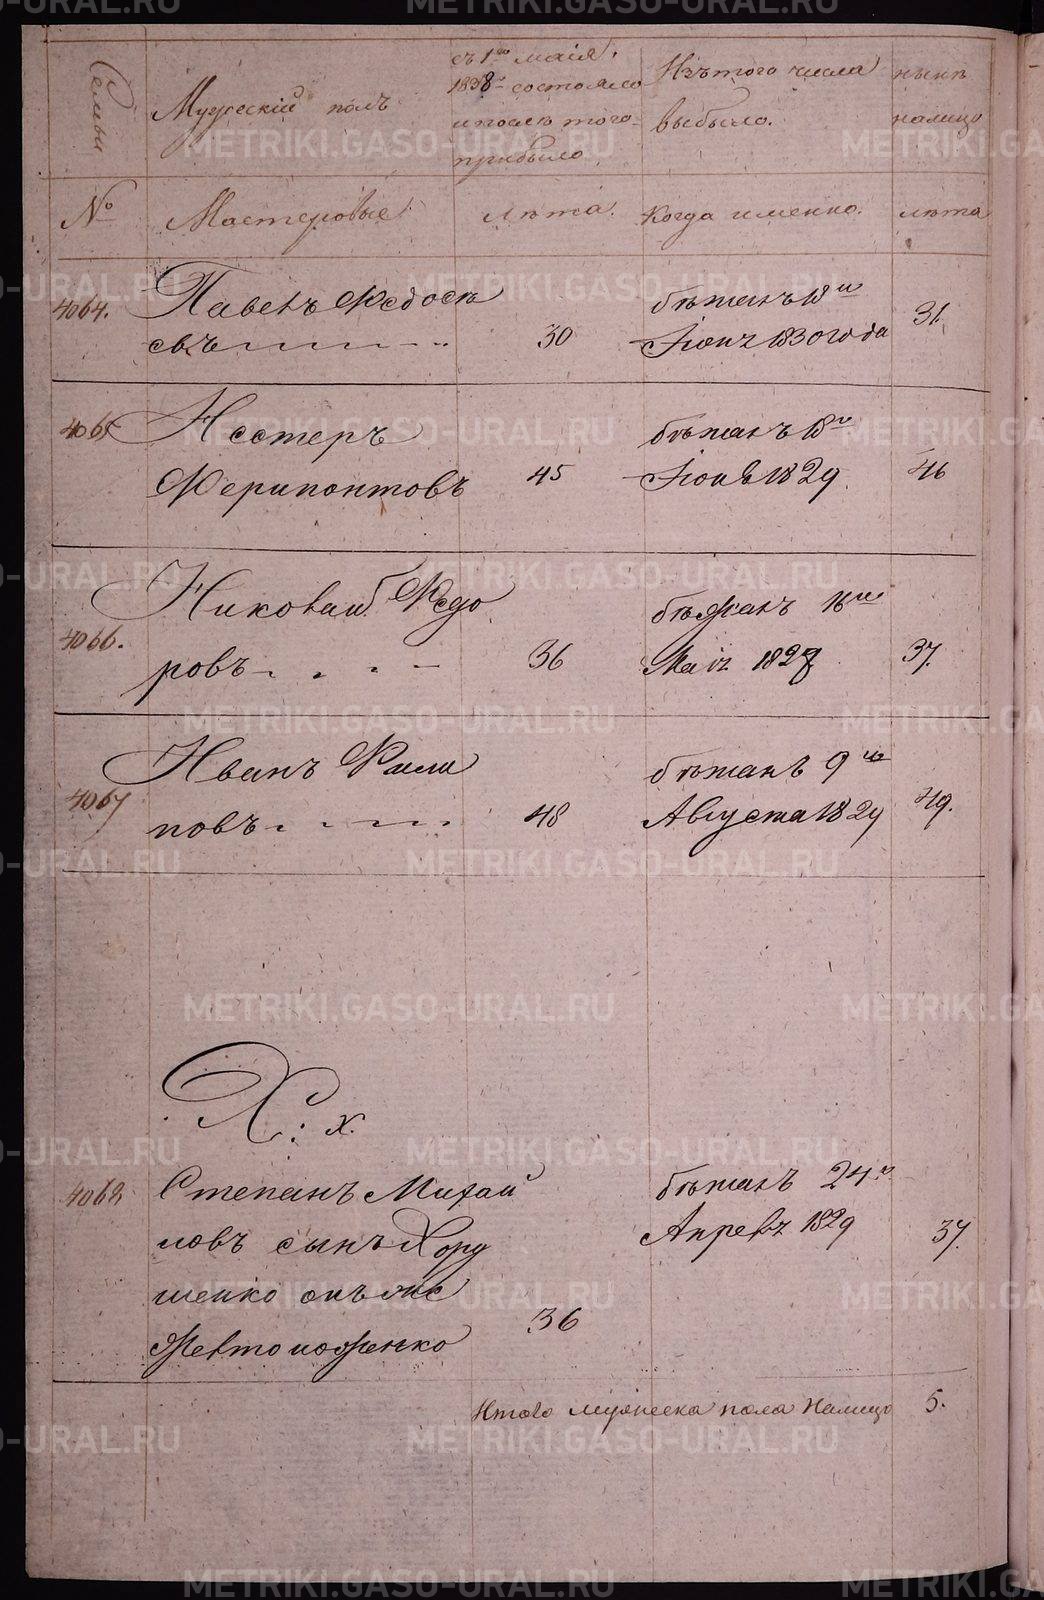 Семьи
Мужескій полъ
съ 1го маія
1838го состояло
и послѣ того
прибыло
Изъ того числа
выбыло.
нынѣ
налицо
№
Мастеровые
лѣта.
Когда именно.
лѣта
4064.
Павелъ Ѳедосѣ
евъ
30
бѣжалъ 18го
Іюня 1830 года
31.
4065
Нестеръ
Ферипонтовъ
45
бѣжалъ 18го
Іюня 1829
46
4066.
Николай Ѳедо
ровъ
36
бѣжалъ 16го
Маія 1829
37.
4067
Иванъ Фили
повъ
48
бѣжалъ 9го
Августа 1829
49.
Х: х.
4068
Степанъ Михай
ловъ сынъ Хору
шенко онъ же
Желтоноженко
36
бѣжалъ 24го
Апреля 1829
37.
Итого мужеска пола налицо
5.
METRIKI.GASO-URAL.RU